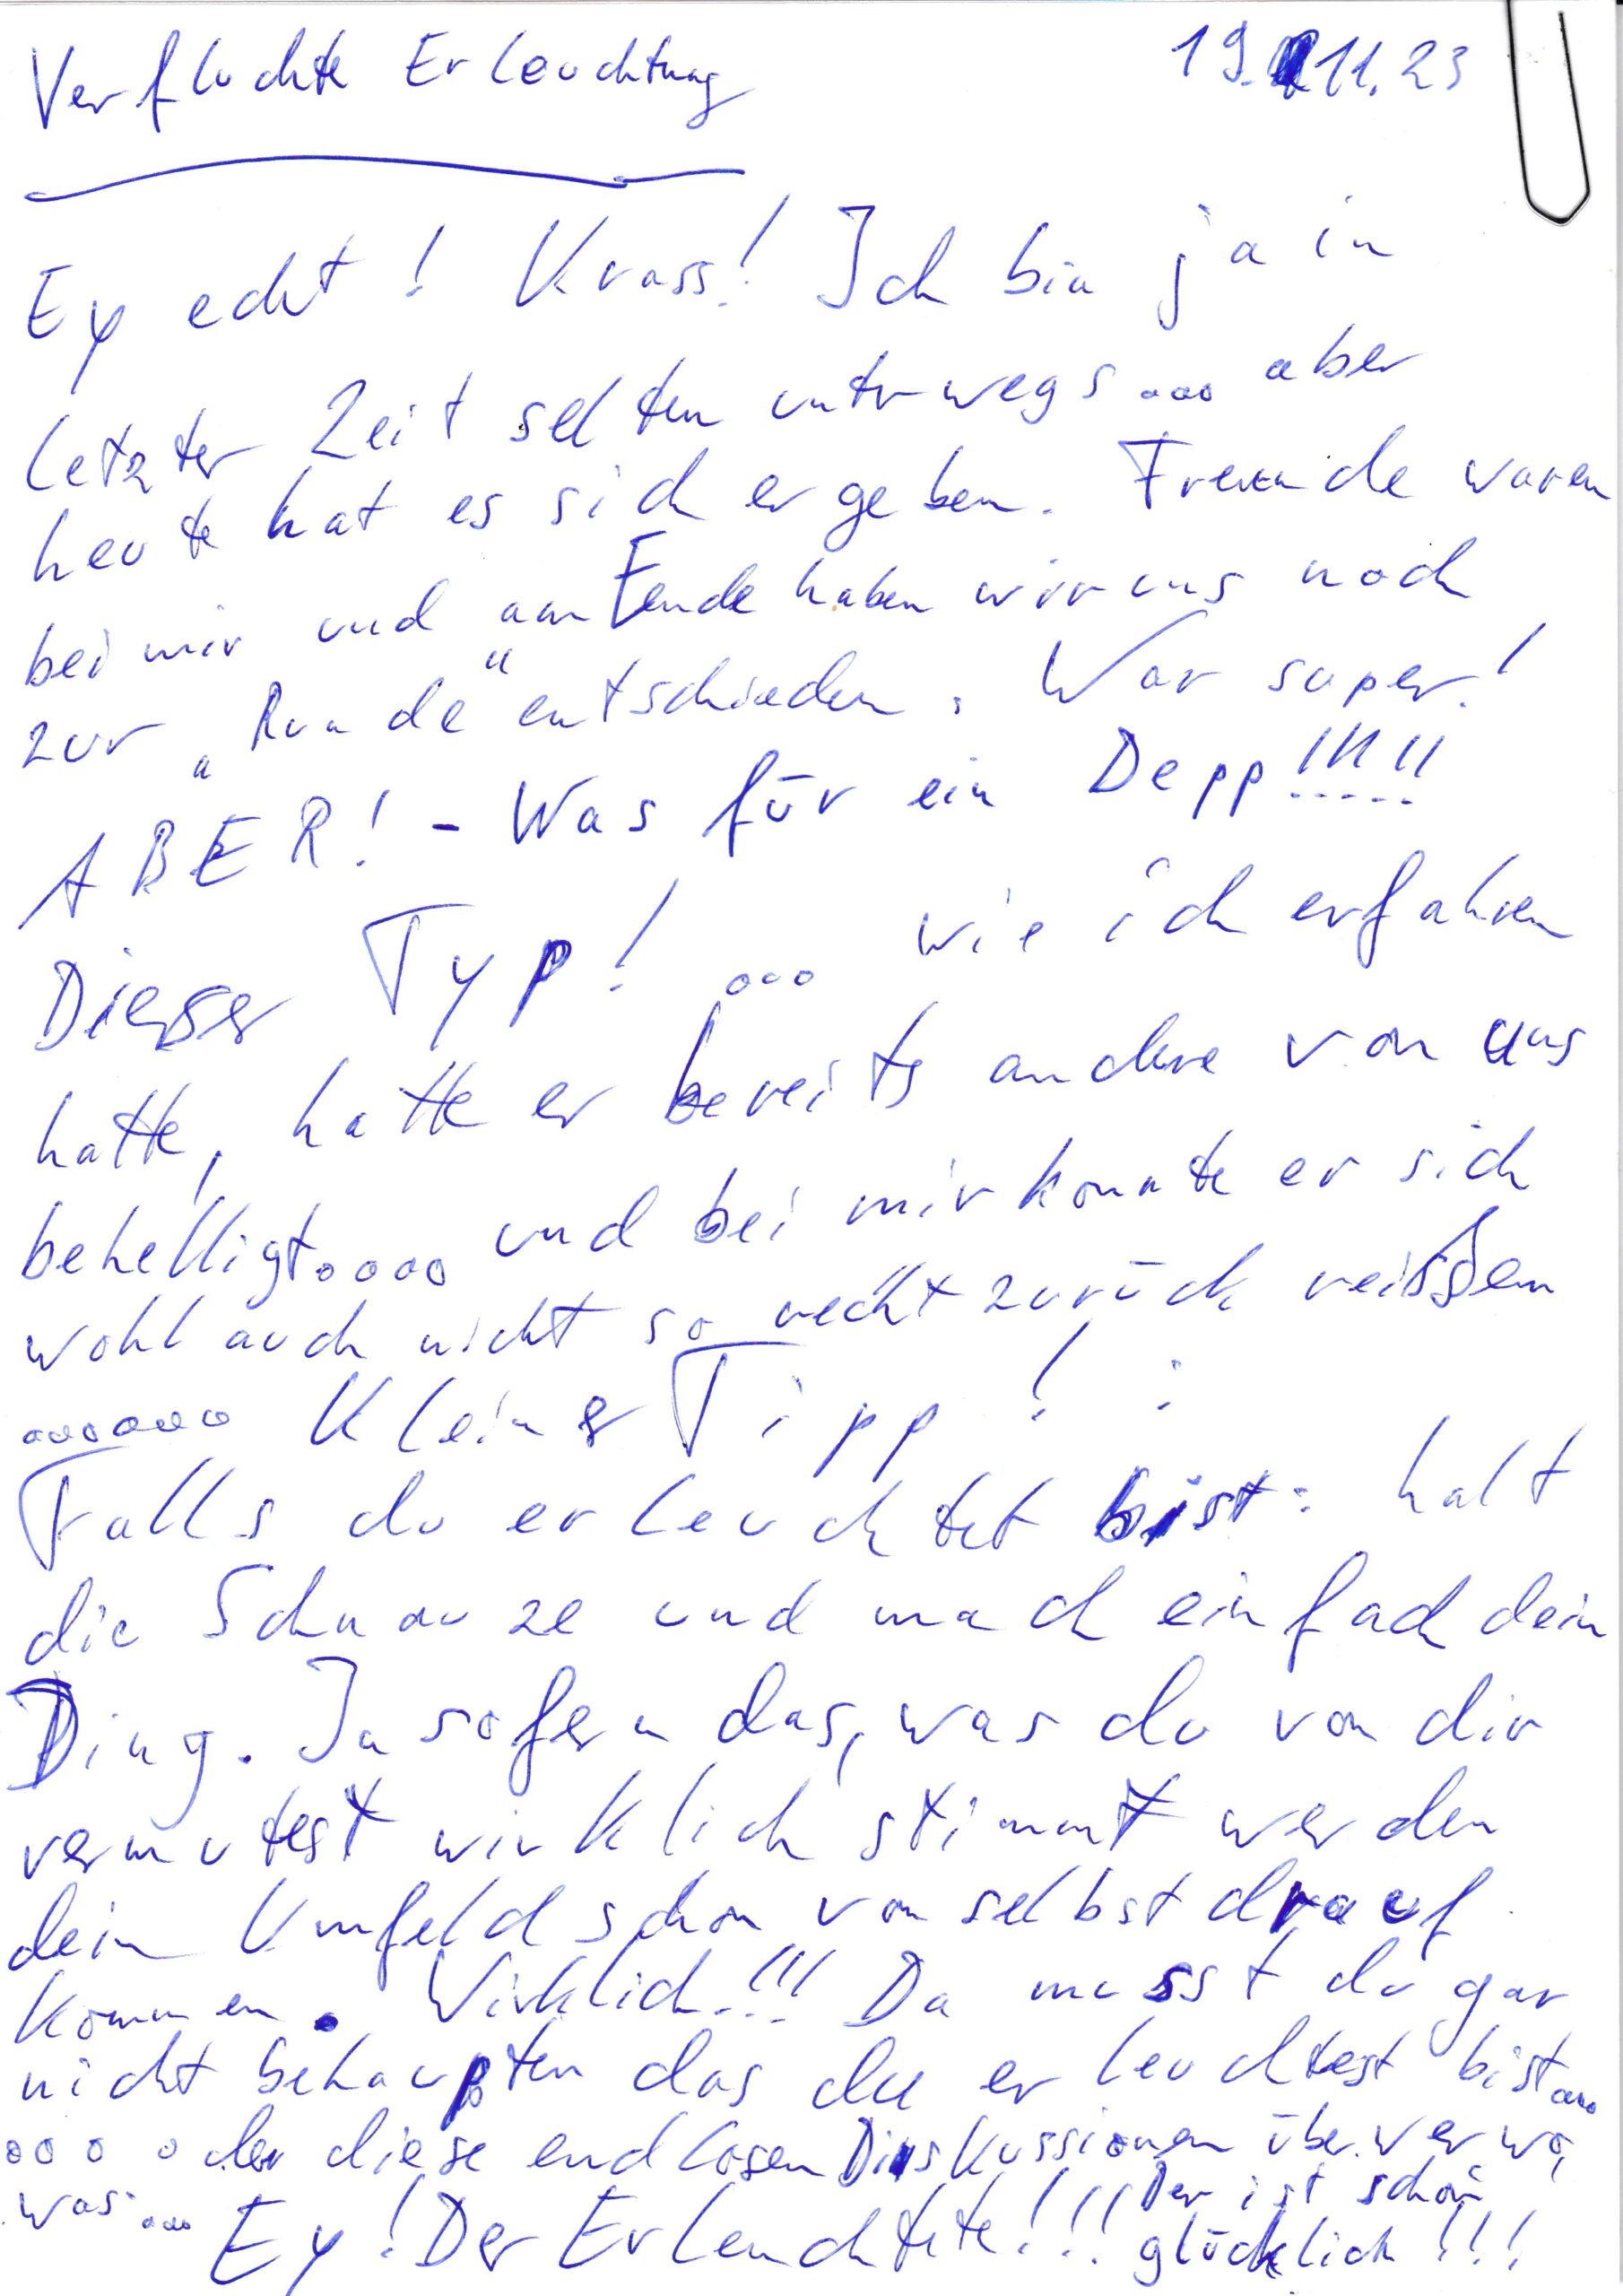 Verfluchte Erleuchtung 19.11.23
Ey echt! Krass! Ich bin ja in
letzter Zeit selten unterwegs... aber
heute hat es sich ergeben. Freunde waren
bei mir und am Ende haben wir uns noch
zur „Runde" entschieden. War super!
ABER! - Was für ein Depp!!!!!
Dieser Typ! ... wie ich erfahren
hatte, hatte er bereits andere von uns
behelligt.... und bei mir konnte er sich
wohl auch nicht so recht zurück reißen
....... Kleiner Tipp! :
Falls du erleuchtet bist: halt
die Schnauze und mach einfach dein
Ding. Insofern das, was du von dir
vermutest wirklich stimmt werden
dein Umfeld schon von selbst drauf
kommen. Wirklich!!! Da musst du gar
nicht behaupten das du erleuchtest bist...
.... oder diese endlosen Diskussionen über wer wo,
was... Ey! Der Erleuchtete!!! Der ist schon
glücklich!!!